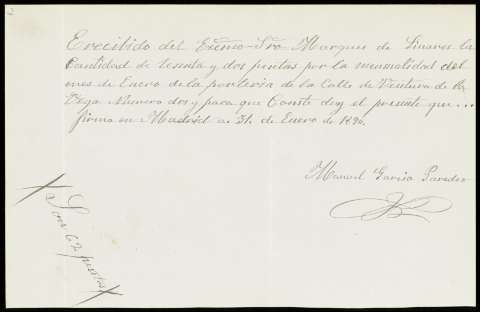 E recibido del Exємo Sro Marques de Linares la
Cantidad de sesenta y dos pesetas por la mensualidad del
mes de Enero de la porteria de la Calle de Ventura de la
Vega Numero dos y para que Conste doy el presente que ...
firmo en Madrid a 31 de Enero de 1890.
Manuel Garcia Paredes
Son 62 pesetas